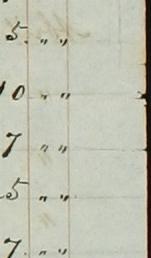 5. " "
10 " "
7 " "
5 " "
7. " "